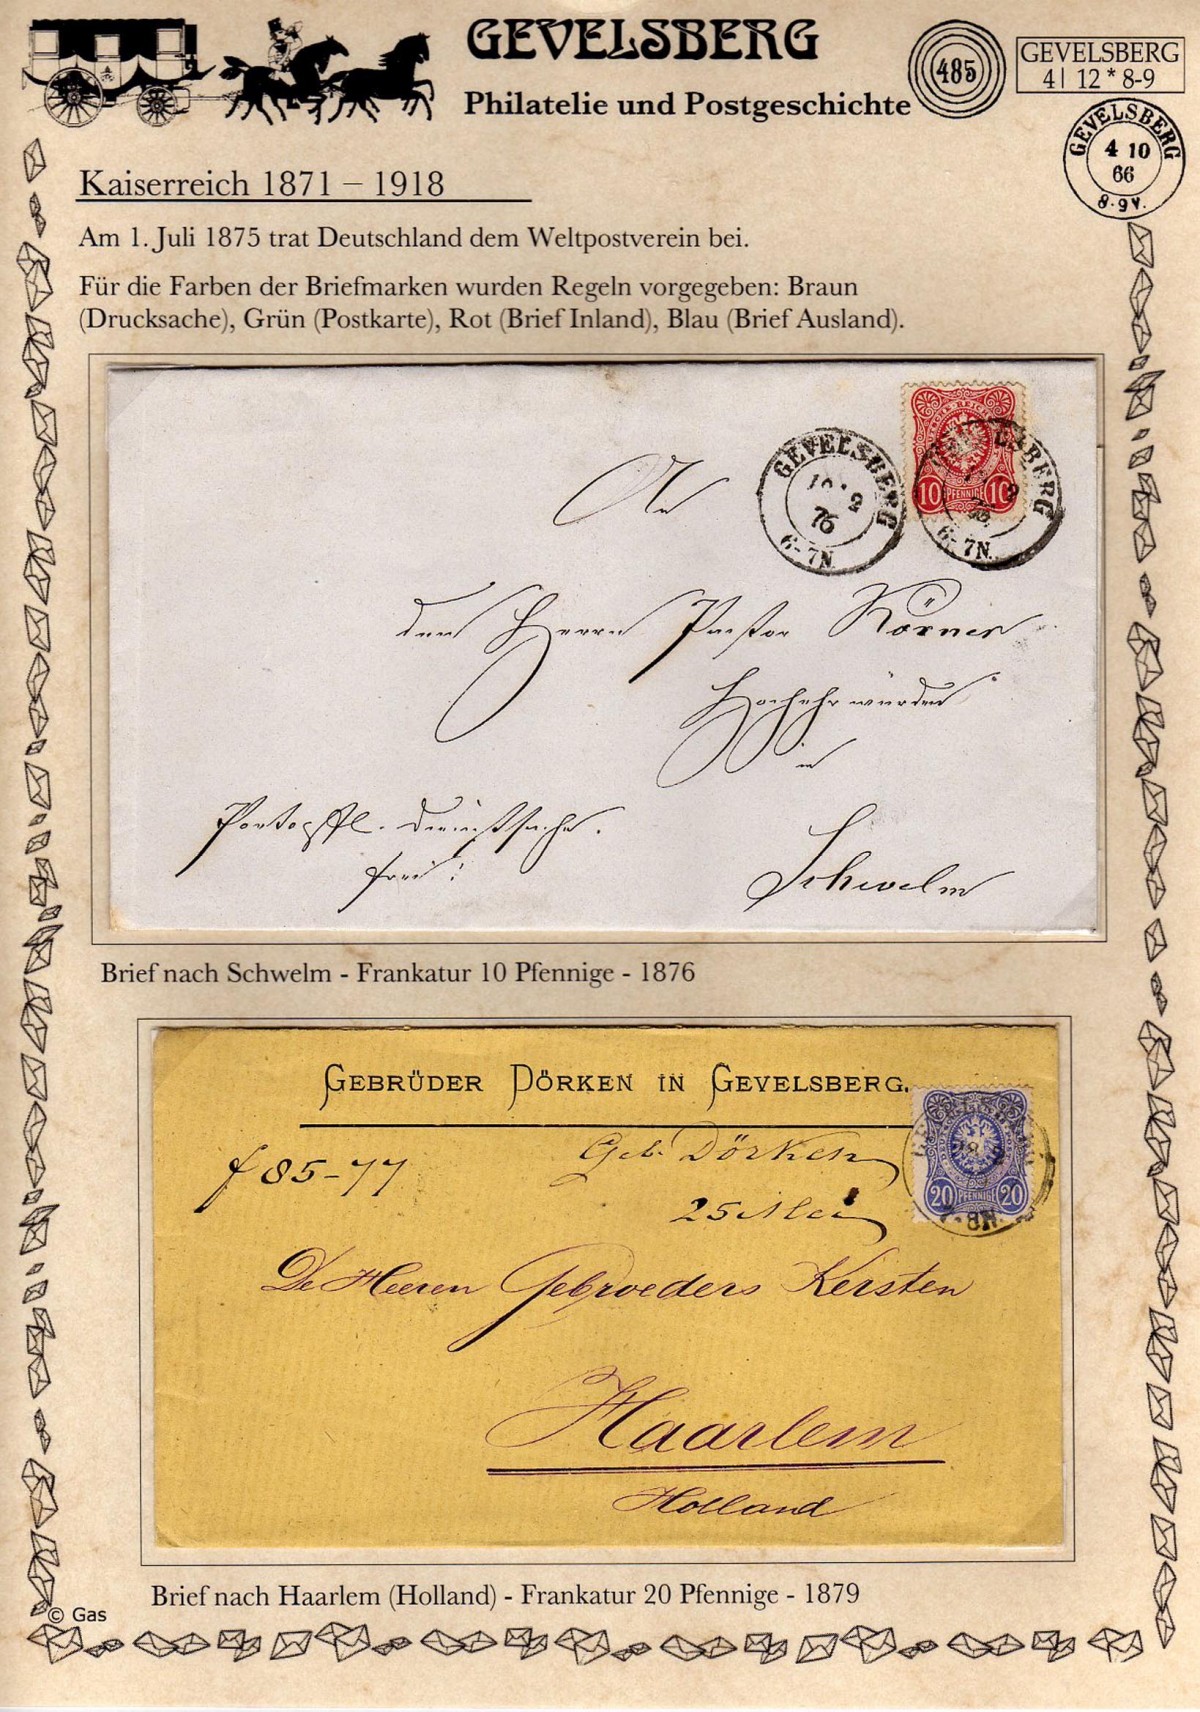 GEVELSBERG
Philatelie und Postgeschichte
485
GEVELSBERG
4| 12 * 8-9
GEVELSBERG
4 10
66
8-9V.
Kaiserreich 1871 – 1918
Am 1. Juli 1875 trat Deutschland dem Weltpostverein bei.
Für die Farben der Briefmarken wurden Regeln vorgegeben: Braun
(Drucksache), Grün (Postkarte), Rot (Brief Inland), Blau (Brief Ausland).
10 PFENNIGE 10
GEVELSBERG
76
6-7N.
ELSBERG
6-7N.
An
den Herrn Pastor Körner
Hochehrwürden
in
Schwelm
Portopfl. Dienstsache.
frei!
Brief nach Schwelm - Frankatur 10 Pfennige - 1876
GEBRÜDER DÖRKEN IN GEVELSBERG.
f 85-77
Geb. Dörken
25 Mei
20 PFENNIGE 20
8N.
De Heeren Gebroeders Kersten
Haarlem
Holland
Brief nach Haarlem (Holland) - Frankatur 20 Pfennige - 1879
© Gas